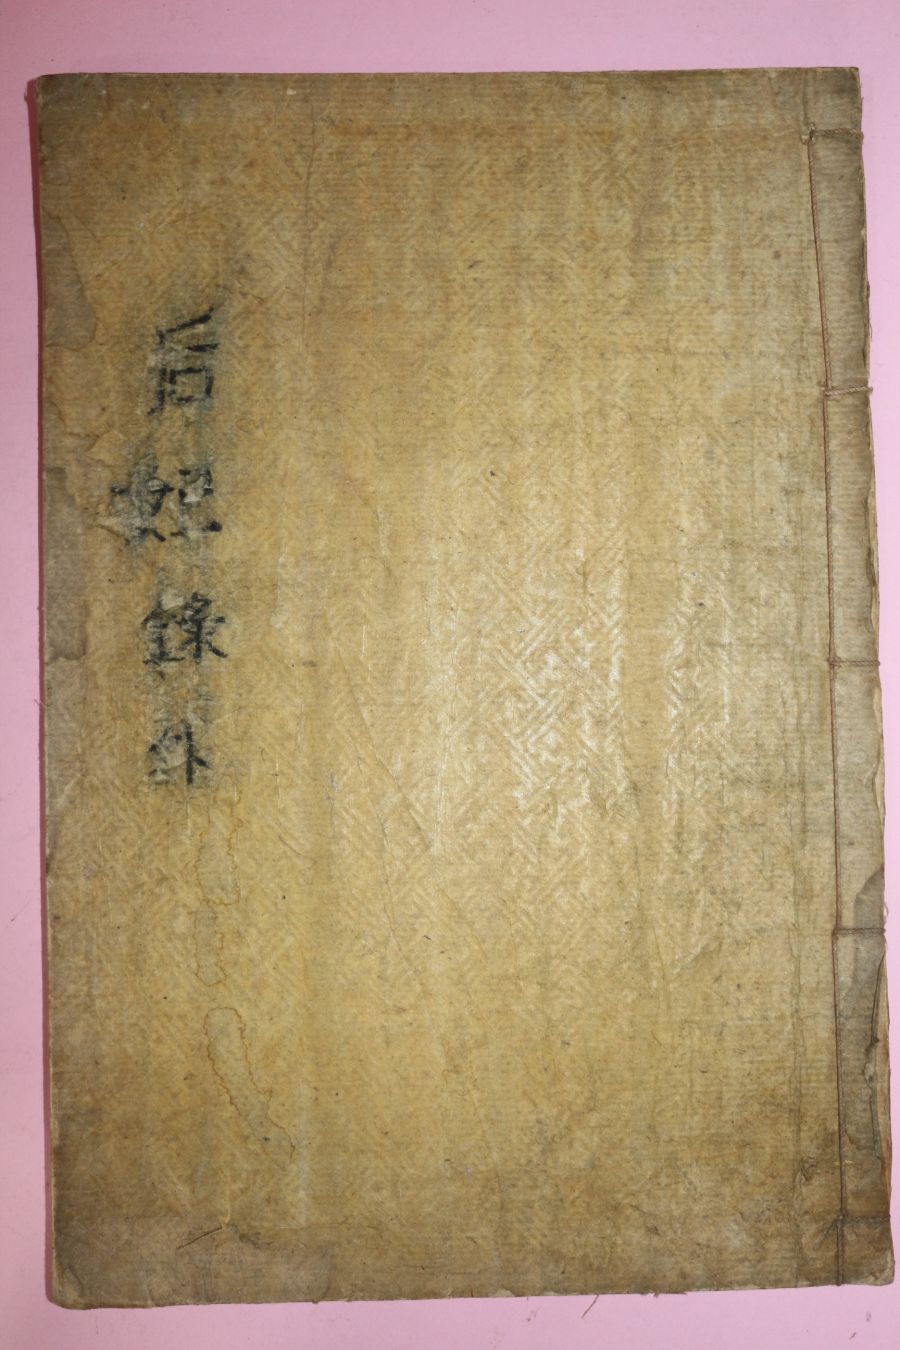 后妃錄外